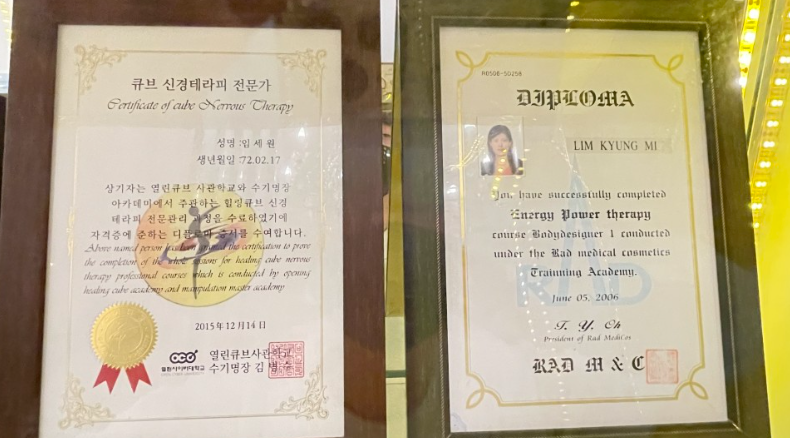 큐브 신경테라피 전문가
Certificate of cube Nervous Therapy
성명 :임 세 원
생년월일 :72.02.17
상기자는 열린큐브 사관학교와 수기명장
아카데미에서 주관하는 힐링큐브 신경
테라피 전문관리 과정을 수료하였기에
자격증에 준하는 디플로마 증서를 수여합니다.
Above named person has been granted the certification to prove
the completion of the whole lessons for healing cube nervous
therapy professional courses which is conducted by opening
healing cube academy and manipulation master academy
2015년 12월 14일
열린큐브사관학교
수기명장 김 범 수
DIPLOMA
LIM KYUNG MI
You have successfully completed
Energy Power therapy
course Bodydesigner 1 conducted
under the Rad medical cosmetics
Training Academy.
RAD
June 05, 2006
T. Y. Oh
President of Rad MediCos
RAD M & C